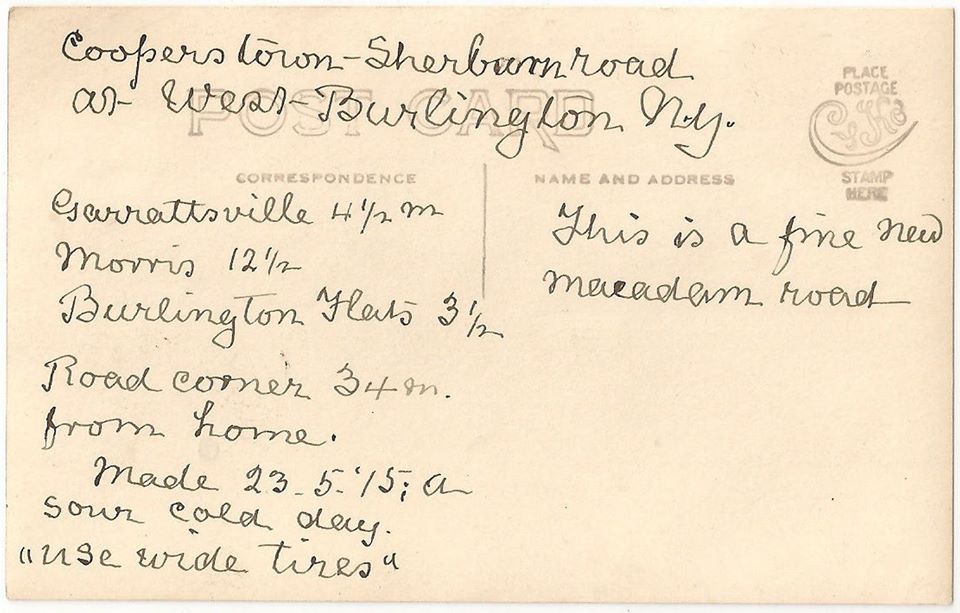 Cooperstown-Sherburn road
at West-Burlington N.Y.
POST CARD
PLACE
POSTAGE
STAMP
HERE
CORRESPONDENCE
NAME AND ADDRESS
Garrattsville 4 1/2 m
Morris 12 1/2
Burlington Flats 3 1/2
Road corner 34 m.
from home.
Made 23-5-'15; a
sour cold day.
"use wide tires"
This is a fine new
macadam road